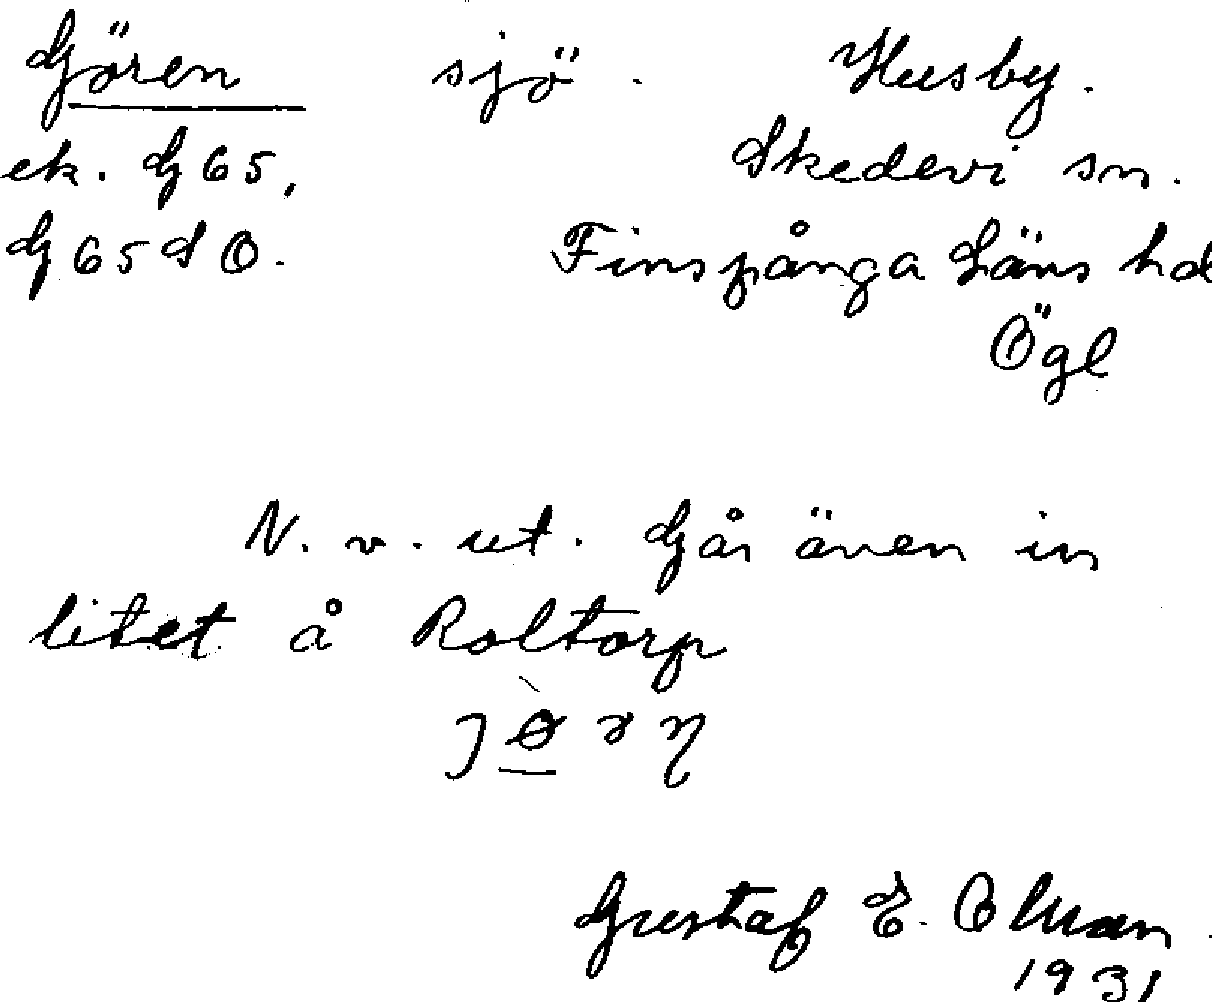 Gören sjö. Husby.
ek. G 65, Skedevi sn.
G 65 S O. Finspånga Läns hd
Ögl
N. v. ut. Går även in
litet å Roltorp
Gustaf E. Olman.
1931